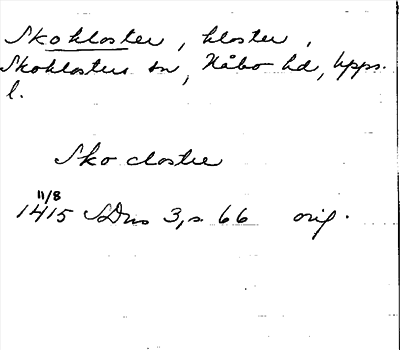 Skokloster, kloster,
Skoklosters sn, Håbo hd, Upps.
l.
Sko closter
11/8
1415 SDns 3, s. 66 orig.